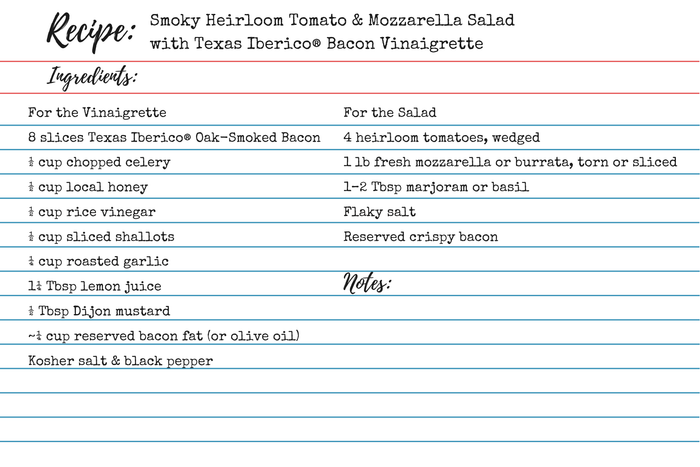 Recipe: Smoky Heirloom Tomato & Mozzarella Salad
with Texas Iberico® Bacon Vinaigrette
Ingredients:
For the Vinaigrette
8 slices Texas Iberico® Oak-Smoked Bacon
cup chopped celery
cup local honey
cup rice vinegar
cup sliced shallots
cup roasted garlic
Tbsp lemon juice
Tbsp Dijon mustard
cup reserved bacon fat (or olive oil)
Kosher salt & black pepper
For the Salad
4 heirloom tomatoes, wedged
1 lb fresh mozzarella or burrata, torn or sliced
1-2 Tbsp marjoram or basil
Flaky salt
Reserved crispy bacon
Notes: